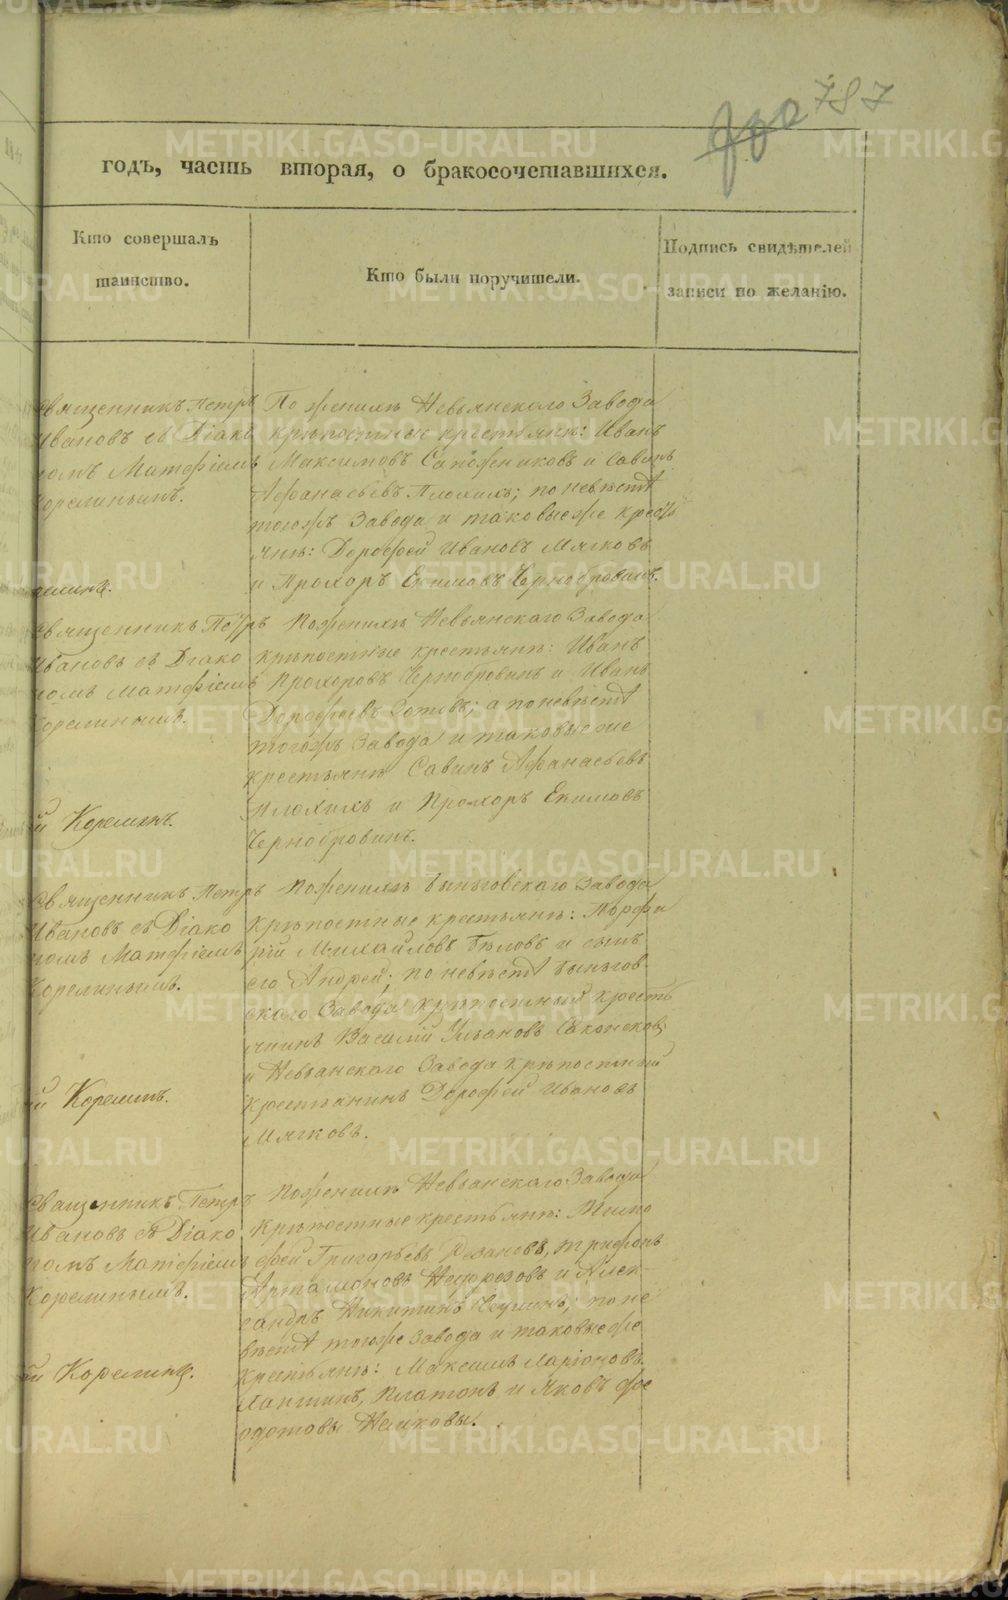 787
годъ, часть вторая, о бракосочетавшихся.
Кто совершалъ
таинство.
Кто были поручители.
Подпись свидѣтелей
записи по желанію.
Священникъ Петръ
Ивановъ съ Діако
номъ Матфіемъ
Корелинымъ.
Корелинъ.
По женихѣ Невьянскаго Завода
крѣпостные крестьяне: Иванъ
Максимовъ Сапожниковъ и Савинъ
Афанасьевъ Плохихъ; по невѣстѣ
тогожъ Завода и таковыеже кресть
яне: Дорофей Ивановъ Мягковъ
и Прохоръ Екимовъ Чернобровинъ.
Священникъ Петръ
Ивановъ съ Діако
номъ Матфіемъ
Корелинымъ.
й Корелинъ.
По женихѣ Невьянскаго Завода
крѣпостные крестьяне: Иванъ
Прохоровъ Чернобровинъ и Иванъ
Дорофеевъ; а по невѣстѣ
тогожъ Завода и таковыеже
крестьяне Савинъ Афанасьевъ
Плохихъ и Прохоръ Екимовъ
Чернобровинъ.
Священникъ Петръ
Ивановъ съ Діако
номъ Матфіемъ
Корелинымъ.
й Корелинъ.
По женихѣ Быньговскаго Завода
крѣпостные крестьяне: Порфи
рій Михайловъ Бѣловъ и сынъ
его Андрей; по невѣстѣ Быньгов
скаго Завода крѣпостный кресть
янинъ Василій Ульяновъ
и Невьянскаго Завода крѣпостный
крестьянинъ Дорофей Ивановъ
Мягковъ.
Священникъ Петръ
Ивановъ съ Діако
номъ Матфіемъ
Корелинымъ.
й Корелинъ.
По женихѣ Невьянскаго Завода
крѣпостные крестьяне: Тимо
фей Григорьевъ, Трифонъ
Артамоновъ и Алек-
сандръ Никитинъ; по не
вѣстѣ тогоже Завода и таковыеже
крестьяне: Максимъ Ларіоновъ
Лапшинъ, Платонъ и Яковъ Фе
одотовы.
METRIKI.GASO-URAL.RU